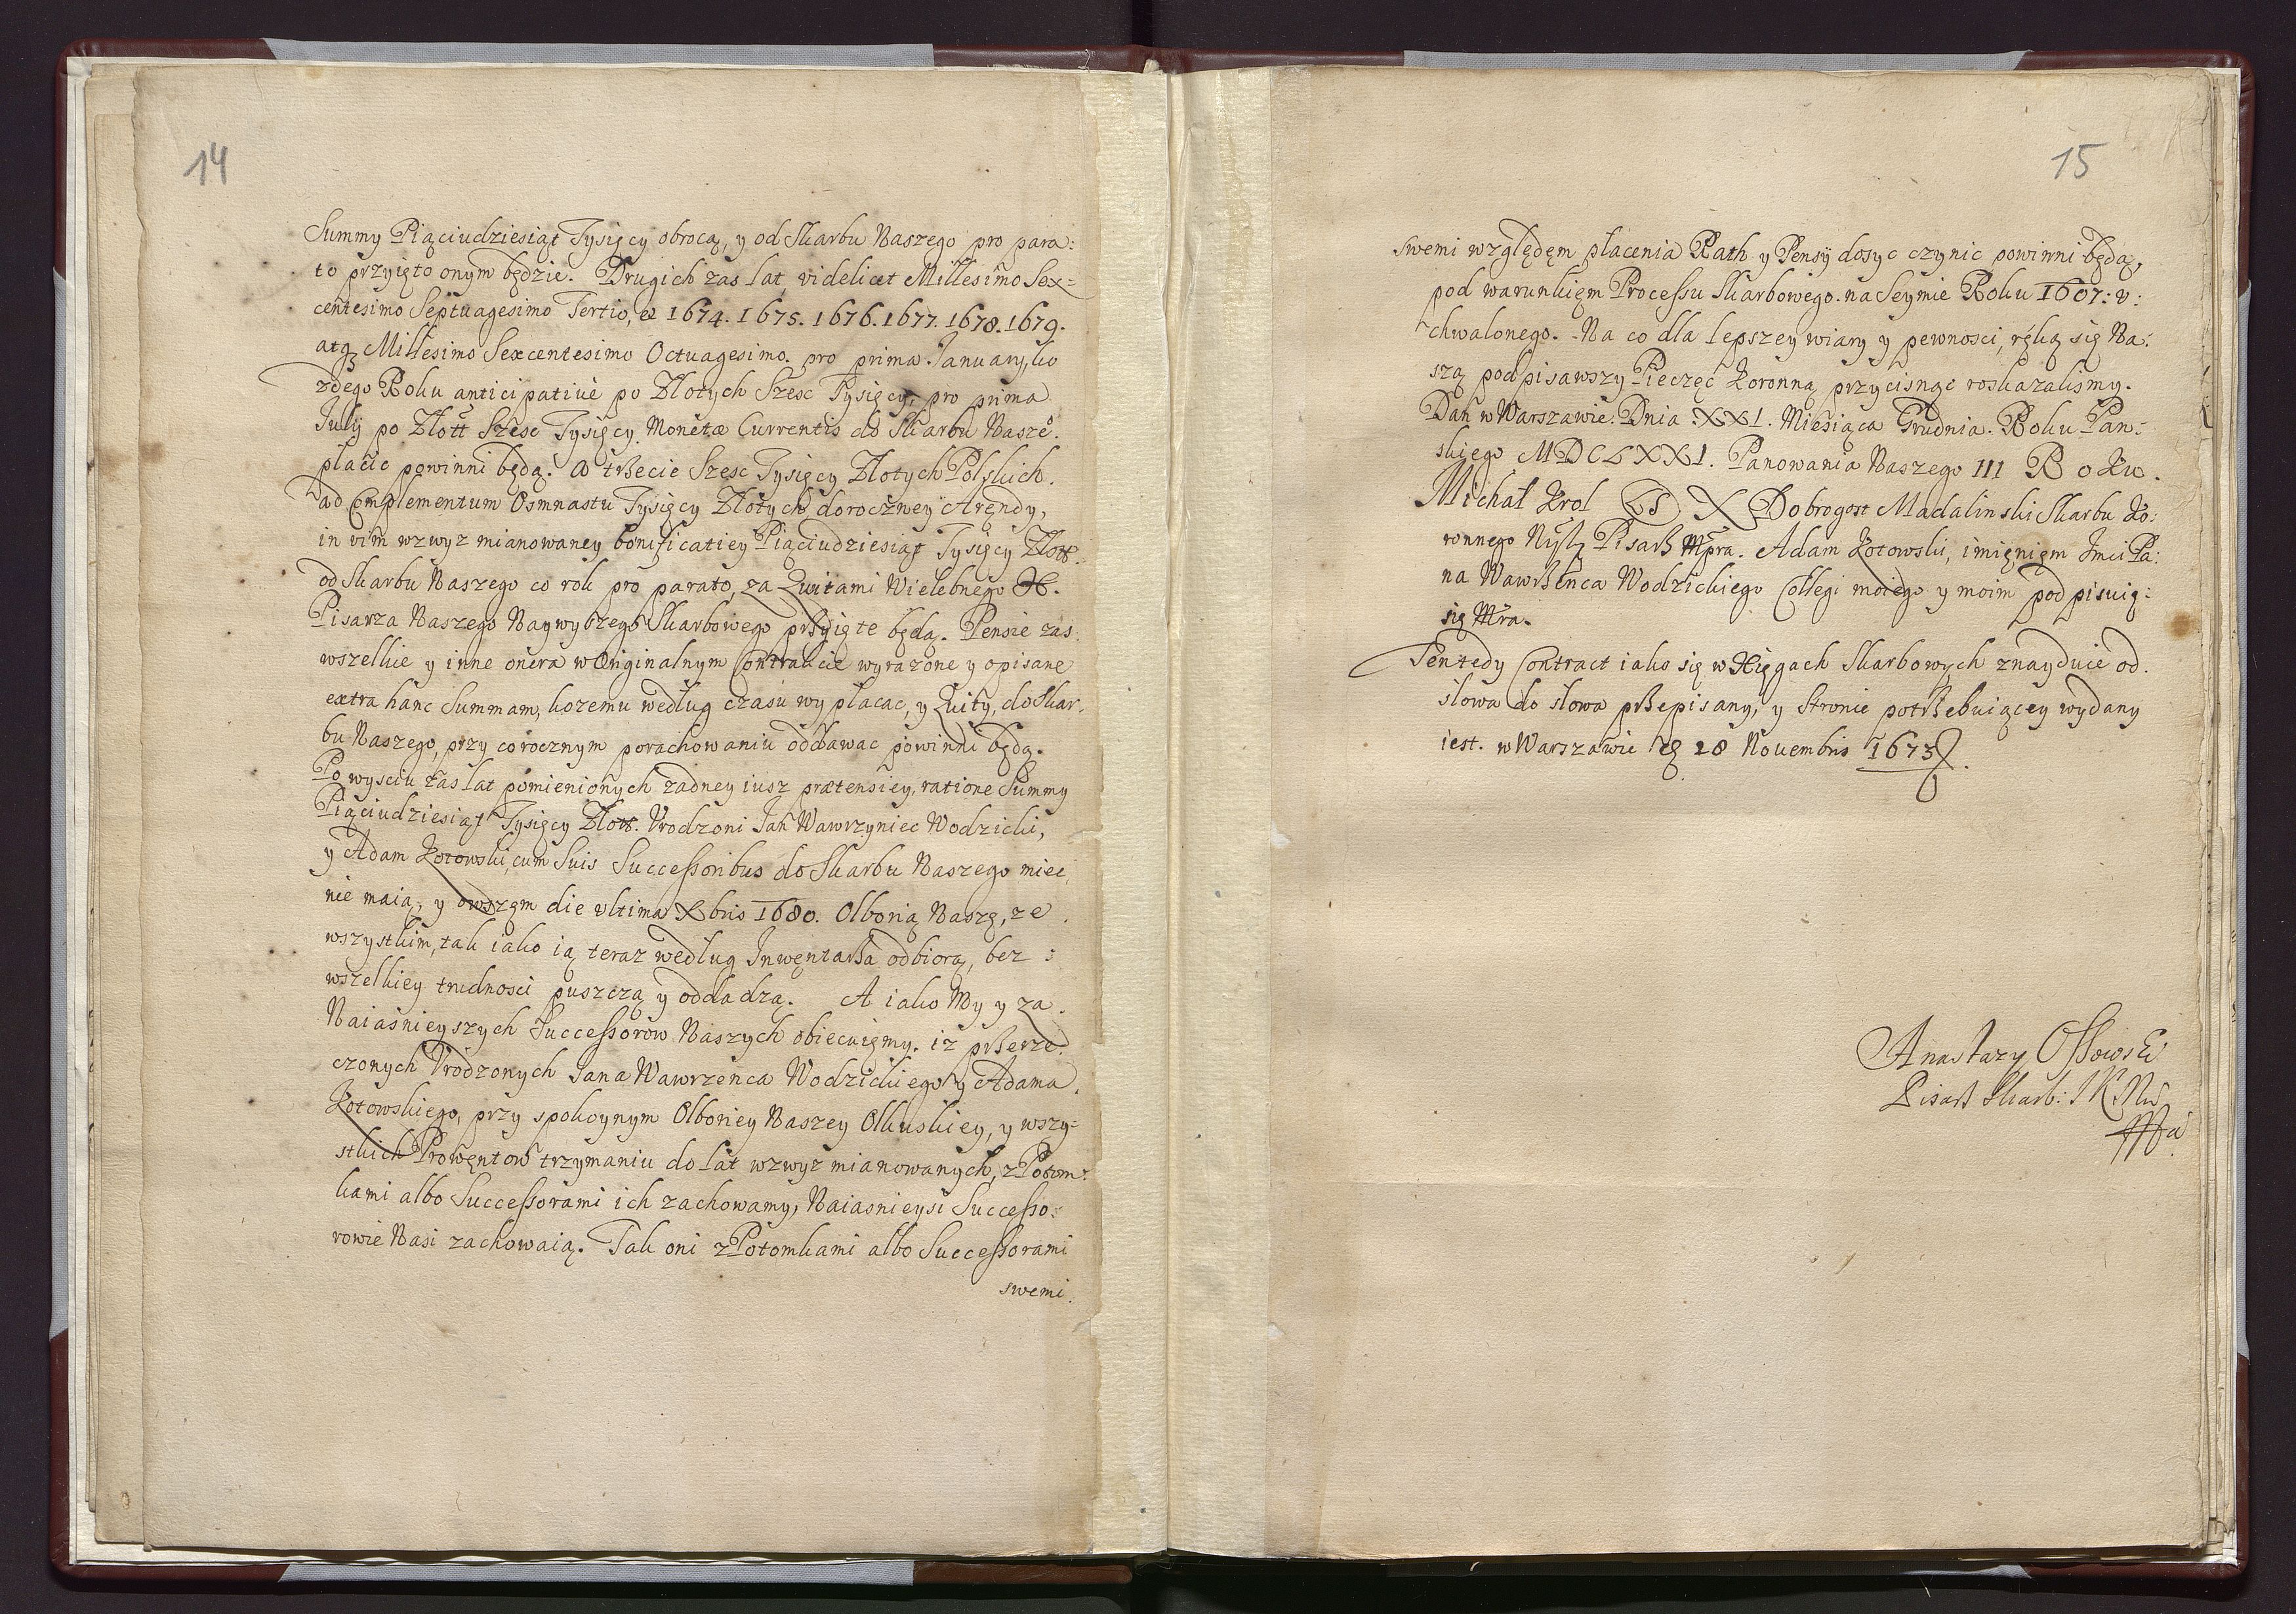 14
Summy Piąciudziesiąt Tysięcy obrocą, y od Skarbu Naszego pro para:
to przyięto onym będzie. Drugich zas lat, videlicet Millesimo Sex=
centesimo Septuagesimo Tertio, et 1674. 1675. 1676. 1677. 1678. 1679.
atq Millesimo Sexcentesimo Octuagesimo. pro prima January, ko
zdego Roku anticipative po Złotych Szesc Tysięcy, pro prima
July po Złott Szesc Tysięcy Moneta Currentis do Skarbu Nasze⁰.
płacic powinni będą. A trzecie Szesc Tysięcy Złotych Polskich.
ad Complementum Osmnastu Tysięcy Złotych doroczney Arendy,
in vim wzwyz mianowaney bonificatiey Piąciudziesiąt Tysięcy Złott.
od Skarbu Naszego co rok pro parato, za Quitami Wielebnego X.
Pisarza Naszego Naywyszego Skarbowego przyięte będą. Pensie zas
wszelkie y inne onera w Originalnym Contrakcie wyrazone y opisane
extra hanc Summam, kozemu według czasu wypłacac, y Quity, do Skar-
bu Naszego, przy corocznym porachowaniu oddawac powinni będą.
Po wysciu zas lat pomienionych zadney iusz prætensiey, ratione Summy
Piąciudziesiąt Tysięcy Złott. Vrodzoni Jan Wawrzyniec Wodzicki,
y Adam Kotowski, cum Suis Successoribus do Skarbu Naszego miec
nie maią, y owszęm die vltima Xbris 1680. Olborią Naszę, ze
wszystkim, tak iako ią teraz według Inwentarza odbiorą, bez :
wszelkiey trudnosci puszczą y oddadzą. A iako My y za
Naiasnieyszych Successorow Naszych obiecuięmy. iz przerze
czonych Vrodzonych Jana Wawrzenca Wodzickiego y Adama
Kotowskiego, przy spokoynym Olboriey Naszey Olkuskiey, y wszy=
stkich Prowentow trzymaniu do lat wzwyz mianowanych, z Potom:
kami albo Successorami ich zachowamy, Naiasnieysi Successo:
rowie Nasi zachowaią. Tak oni z Potomkami albo Successorami
swemi.
15
swemi względęm płacenia Rath y Pensy dosyc czynic powinni będą,
pod warunkięm Processu Skarbowego. na Seymie Roku 1607: v:
chwalonego. Na co dla lepszey wiary y pewnosci, ręką się Na:
szą podpisawszy Pieczęc Koronną przycisnąc roskazalismy.
Dan w Warszawie. Dnia XXI. Miesiąca Grudnia. Roku Pan:
skiego MDCLXXI. Panowania Naszego III Roku.
Michał Krol LS X Dobrogost Madalinski Skarbu Ko:
ronnego Nyszy Pisarz Mpra. Adam Kotowski, imięnięm Jmci Pa:
na Wawrzenca Wodzickiego Collegi moiego y moim podpisuię:
się Mra.
Ten tedy Contract iako się w Xięgach Skarbowych znayduie od
słowa do słowa przepisany, y stronie potrzebuiącey wydany
iest. w Warszawie 28 Novembris 1673.
Anastazy Ossowski
Pisarz Skarb: JKMsci